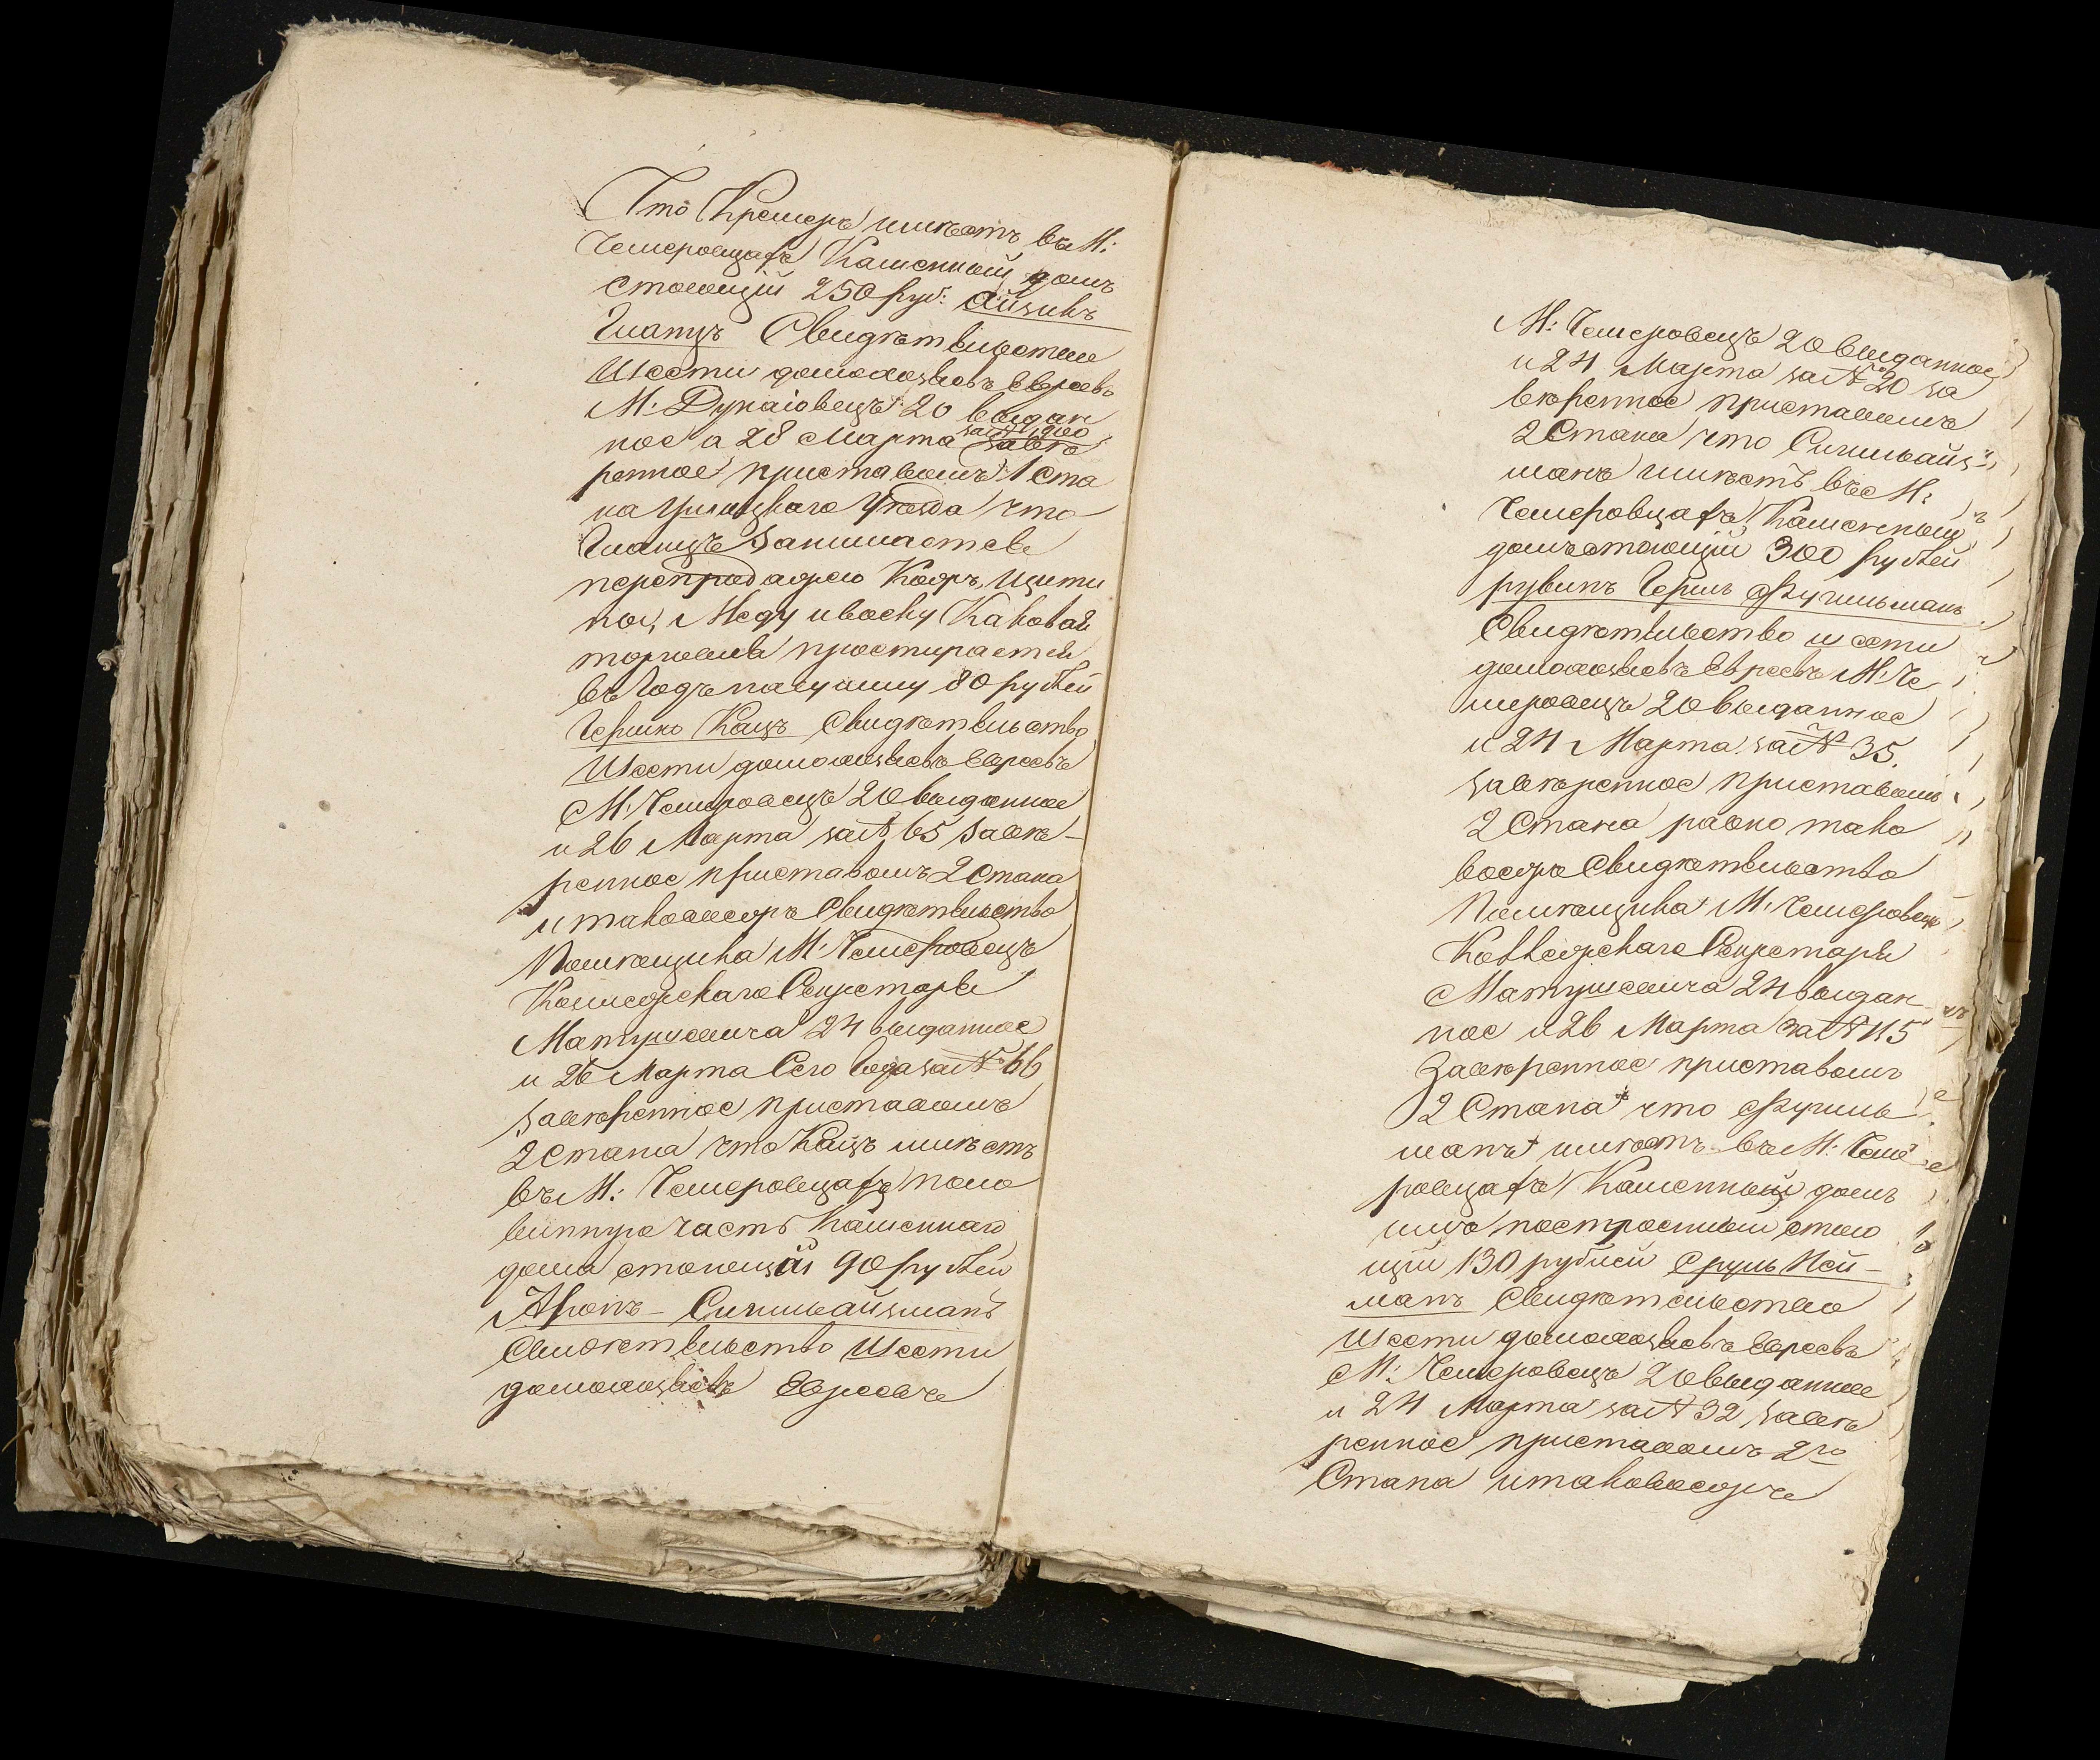 Что Кремеръ имѣетъ въ М:
Чемеровцахъ Каменный домъ
стоющій 250 руб: Айзикъ
Гланцъ Свидѣтельство
Шести домохозяевъ Евреевъ
М: Дунаіовецъ 20 выдан
за № 1900
ное а 28 Марта завѣ
ренное приставомъ 1 Ста
на Ушицкаго Уѣзда что
Гланцъ Занимается
перепродажею Кожъ, щети
ны, Меду и воску Каковая
торговля простирается
въ Годъ на сумму 80 рублей
Гершко Кацъ Свидѣтельство
Шести домохозяевъ Евреевъ
М. Чемеровецъ 20 выданное
и 26 Марта за № 65 завѣ-
ренное приставомъ 2 Стана
и таковоежъ Свидѣтельство
Помѣщика М. Чемеровецъ
Коллежскаго Секретаря
Матушевича 24 выданное
и 26 Марта Сего Года за № 66
завѣренное приставомъ
2 Стана что Кацъ имѣетъ
въ М: Чемеровцахъ поло
винную часть Каменнаго
дома стоющій 90 рублей
Аронъ Сичильайзманъ
Свидѣтельство Шести
домохозяевъ Евреевъ
М: Чемеровецъ 20 выданное
и 24 Марта за № 20 за
вѣренное приставомъ
2 Стана что Сичильайз-
манъ имѣетъ въ М:
Чемеровцахъ Каменный
домъ стоющій 300 рублей
рувинъ Гершъ Фучильманъ
Свидѣтельство шести
домохозяевъ Евреевъ М: Че
меровецъ 20 выданное
и 24 Марта за № 35.
завѣренное приставомъ
2 Стана равно тако
воежъ Свидѣтельство
Помѣщика М. Чемеровецъ
Коллежскаго Секретаря
Матушевича 24 выдан
ное и 26 Марта за № 115
Завѣренное приставомъ
2 Стана что Фучиль
манъ имѣетъ въ М: Чеме
ровцахъ Каменный домъ
имъ построенный стою
щій 130 рублей Сруль Ней-
манъ Свидѣтельство
Шести домохозяевъ Евреевъ
М: Чемеровецъ 20 выданное
и 24 Марта за № 32 завѣ
ренное приставомъ 2го
Стана и таковоежъ